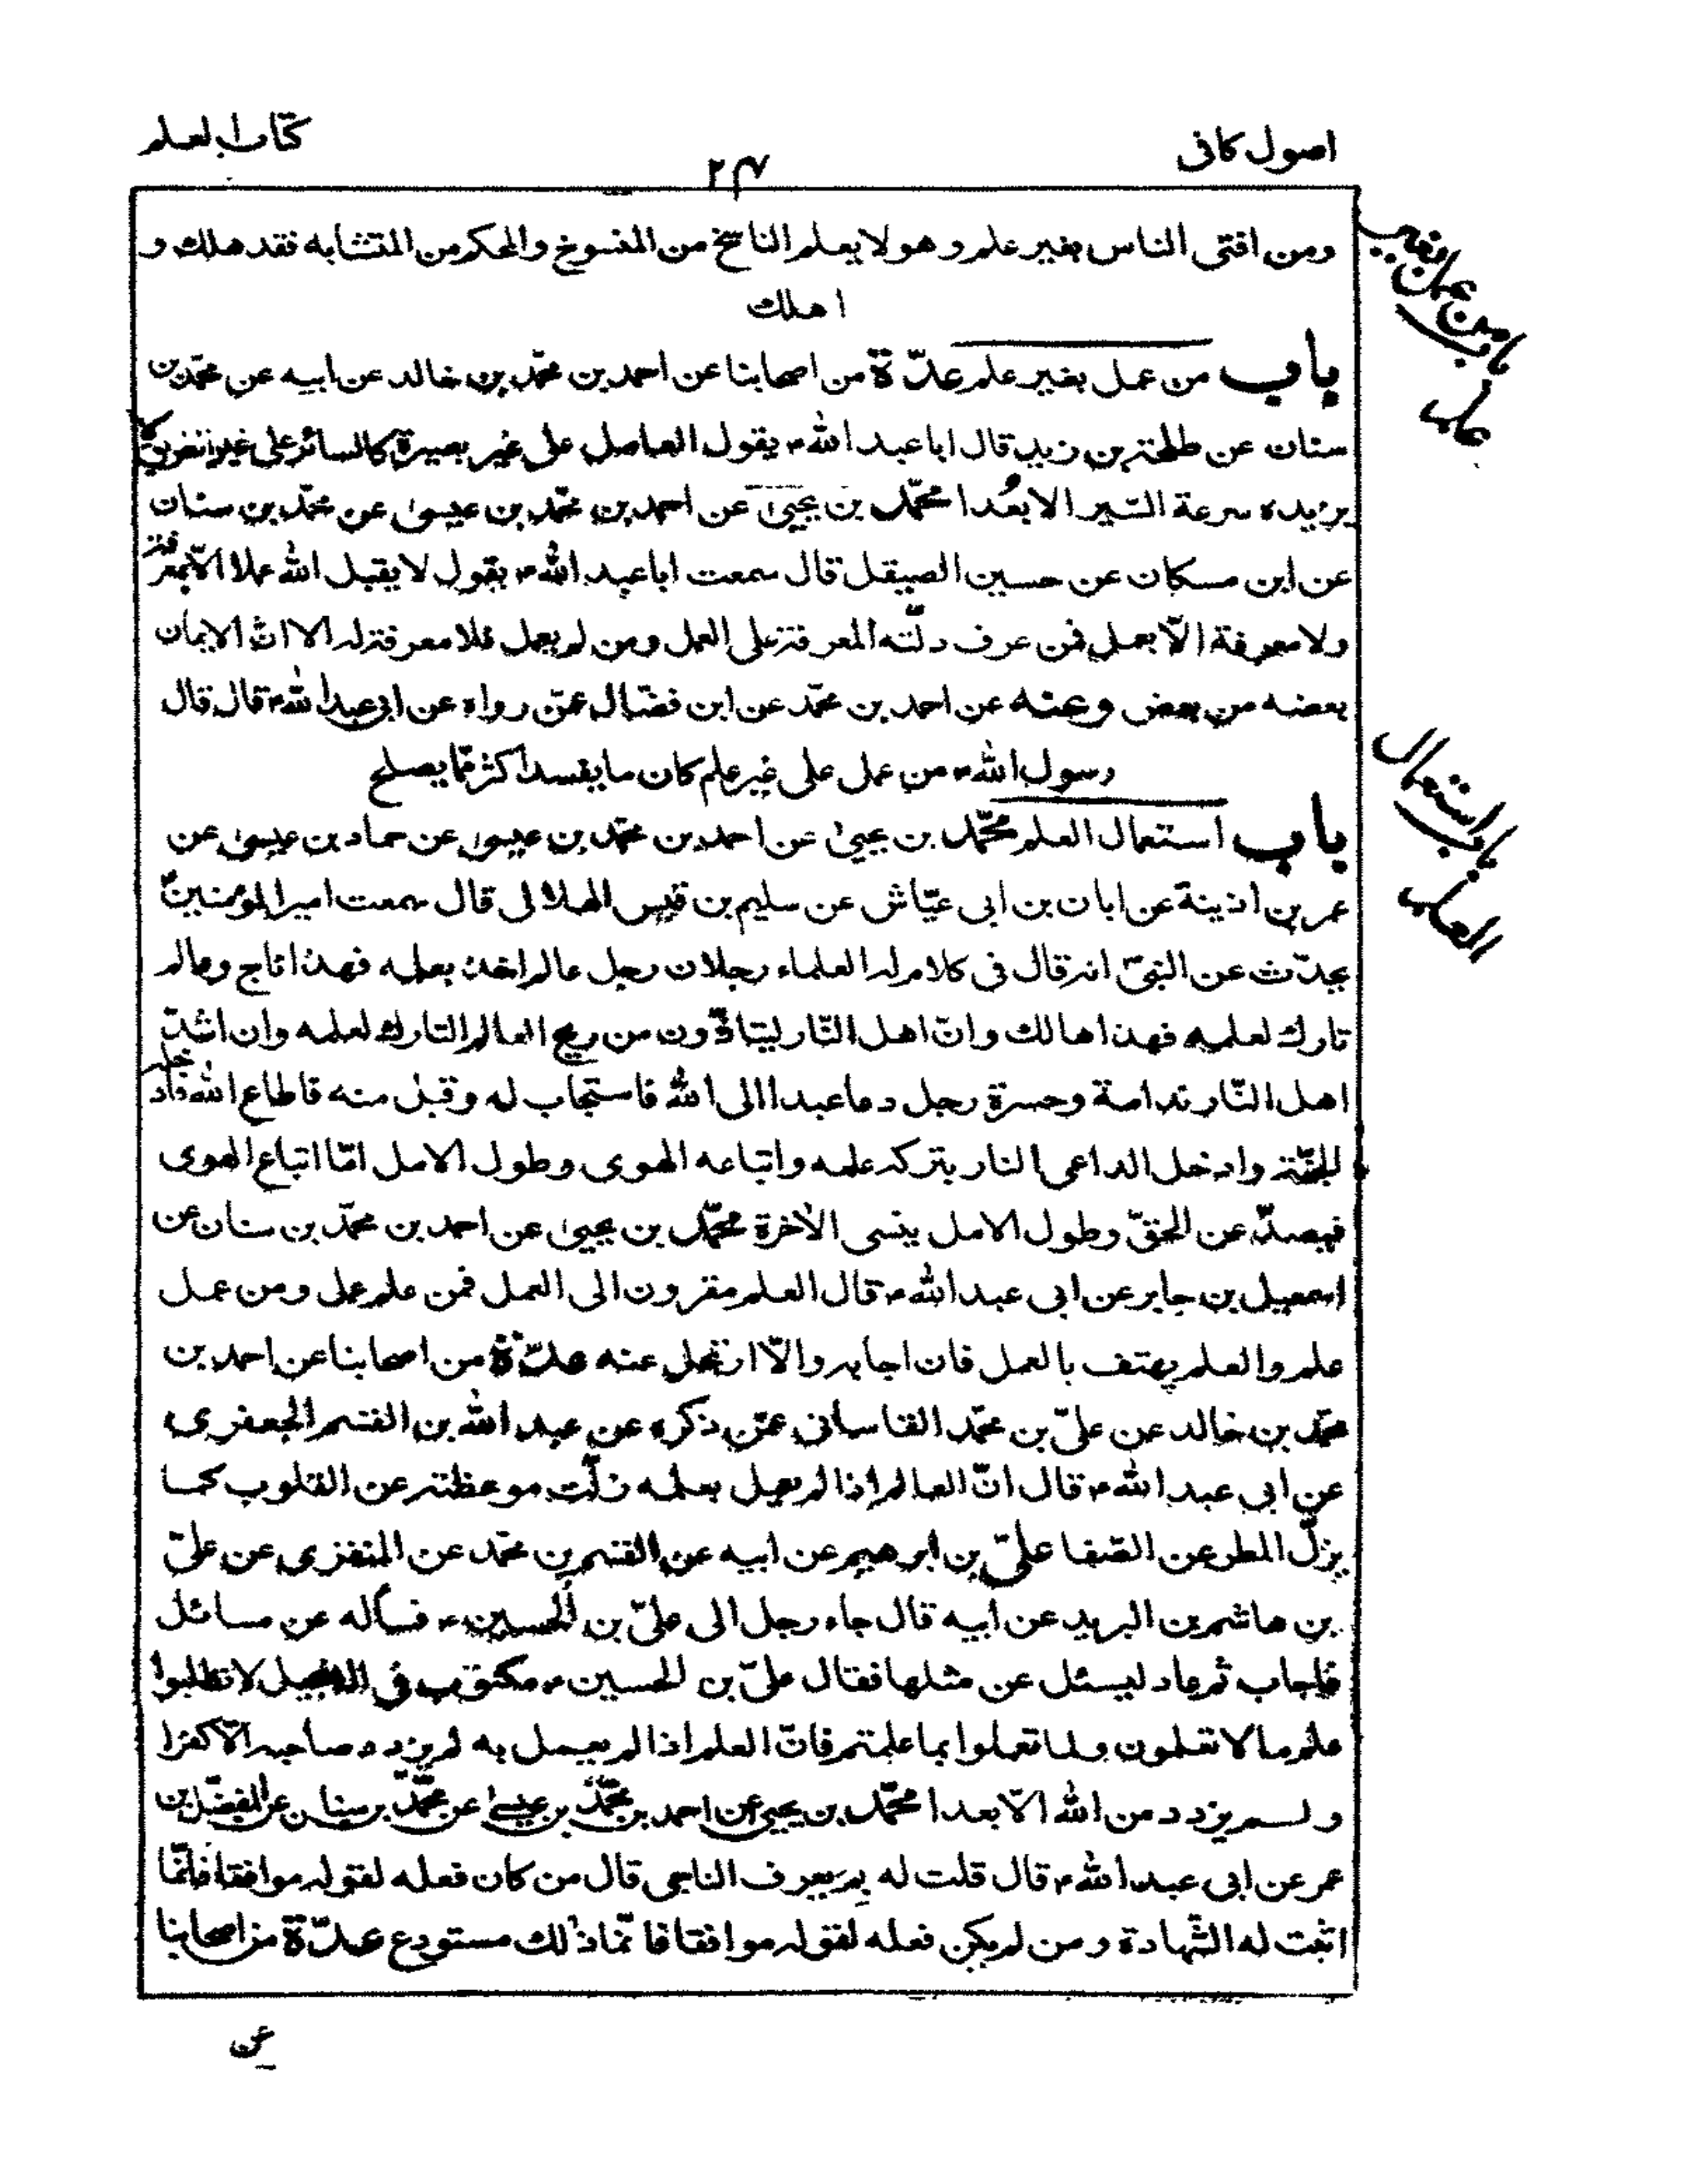 اصول كافى
كتاب العلم
٢٤
ومن افتى الناس بغير علم وهو لا يعلم الناسخ من المنسوخ والمحكم من المتشابه فقد هلك و
اهلك
باب من عمل بغير علم عدّة من اصحابنا عن احمد بن محمّد بن خالد عن ابيه عن محمّد بن
سنان عن طلحة بن زيد قال ابا عبد الله ع يقول العامل على غير بصيرة كالسائر على غير الطريق لا
يزيده سرعة السّير الا بُعدا محمّد بن يحيىٰ عن احمد بن محمّد بن عيسىٰ عن محمّد بن سنان
عن ابن مسكان عن حسين الصيقل قال سمعت ابا عبد الله ع يقول لا يقبل الله عملا الّا بمعرفة
ولا معرفة الّا بعمل فمن عرف دلّته المعرفة على العمل ومن لم يعمل فلا معرفة له الا انّ الايمان
بعضه من بعض وعنه عن احمد بن محمّد عن ابن فضّال عمّن رواه عن ابى عبد الله ع قال قال
رسول الله ص من عمل على غير علم كان ما يفسد اكثر ممّا يصلح
باب استعمال العلم محمّد بن يحيىٰ عن احمد بن محمّد بن عيسىٰ عن حماد بن عيسىٰ عن
عمر بن اذينة عن ابان بن ابى عيّاش عن سليم بن قيس الهلالى قال سمعت امير المؤمنين ع
يحدّث عن النبىّ انه قال فى كلام له العلماء رجلان رجل عالم اخذ بعلمه فهذا ناج وعالم
تارك لعلمه فهذا هالك وانّ اهل النّار ليتاذّون من ريح العالم التارك لعلمه وان اشدّ
اهل النّار ندامة وحسرة رجل دعا عبدا الى الله فاستجاب له وقبل منه فاطاع الله فادخله
الجنّة وادخل الداعى النار بتركه علمه واتباعه الهوى وطول الامل امّا اتباع الهوى
فيصدّ عن الحقّ وطول الامل ينسى الاخرة محمّد بن يحيىٰ عن احمد بن محمّد بن سنان عن
اسمعيل بن جابر عن ابى عبد الله ع قال العلم مقرون الى العمل فمن علم عمل ومن عمل
علم والعلم يهتف بالعمل فان اجابه والّا ارتحل عنه عدّة من اصحابنا عن احمد بن
محمّد بن خالد عن علىّ بن محمّد القاسانى عمّن ذكره عن عبد الله بن القسم الجعفرى
عن ابى عبد الله ع قال انّ العالم اذا لم يعمل بعلمه زلّت موعظته عن القلوب كما
يزلّ المطر عن الصّفا علىّ بن ابرهيم عن ابيه عن القسم بن محمّد عن المنقرى عن علىّ
بن هاشم بن البريد عن ابيه قال جاء رجل الى علىّ بن الحسين ع فسأله عن مسائل
فاجاب ثم عاد ليسئل عن مثلها فقال علىّ بن الحسين ع مكتوب فى الانجيل لا تطلبوا
علم ما لا تعلمون ولما تعملوا بما علمتم فانّ العلم اذا لم يعمل به لم يزدد صاحبه الّا كفرا
ولم يزدد من الله الّا بعدا محمّد بن يحيى عن احمد بن محمّد بن عيسىٰ عن محمّد بن سنان عن المفضّل بن
عمر عن ابى عبد الله ع قال قلت له بِمَ يعرف الناجى قال من كان فعله لقوله موافقا فانّما
اثبت له الشّهادة ومن لم يكن فعله لقوله موافقا فانّما ذلك مستودع عدّة من اصحابنا
عن
باب من عمل بغير
علم
باب استعمال
العلم